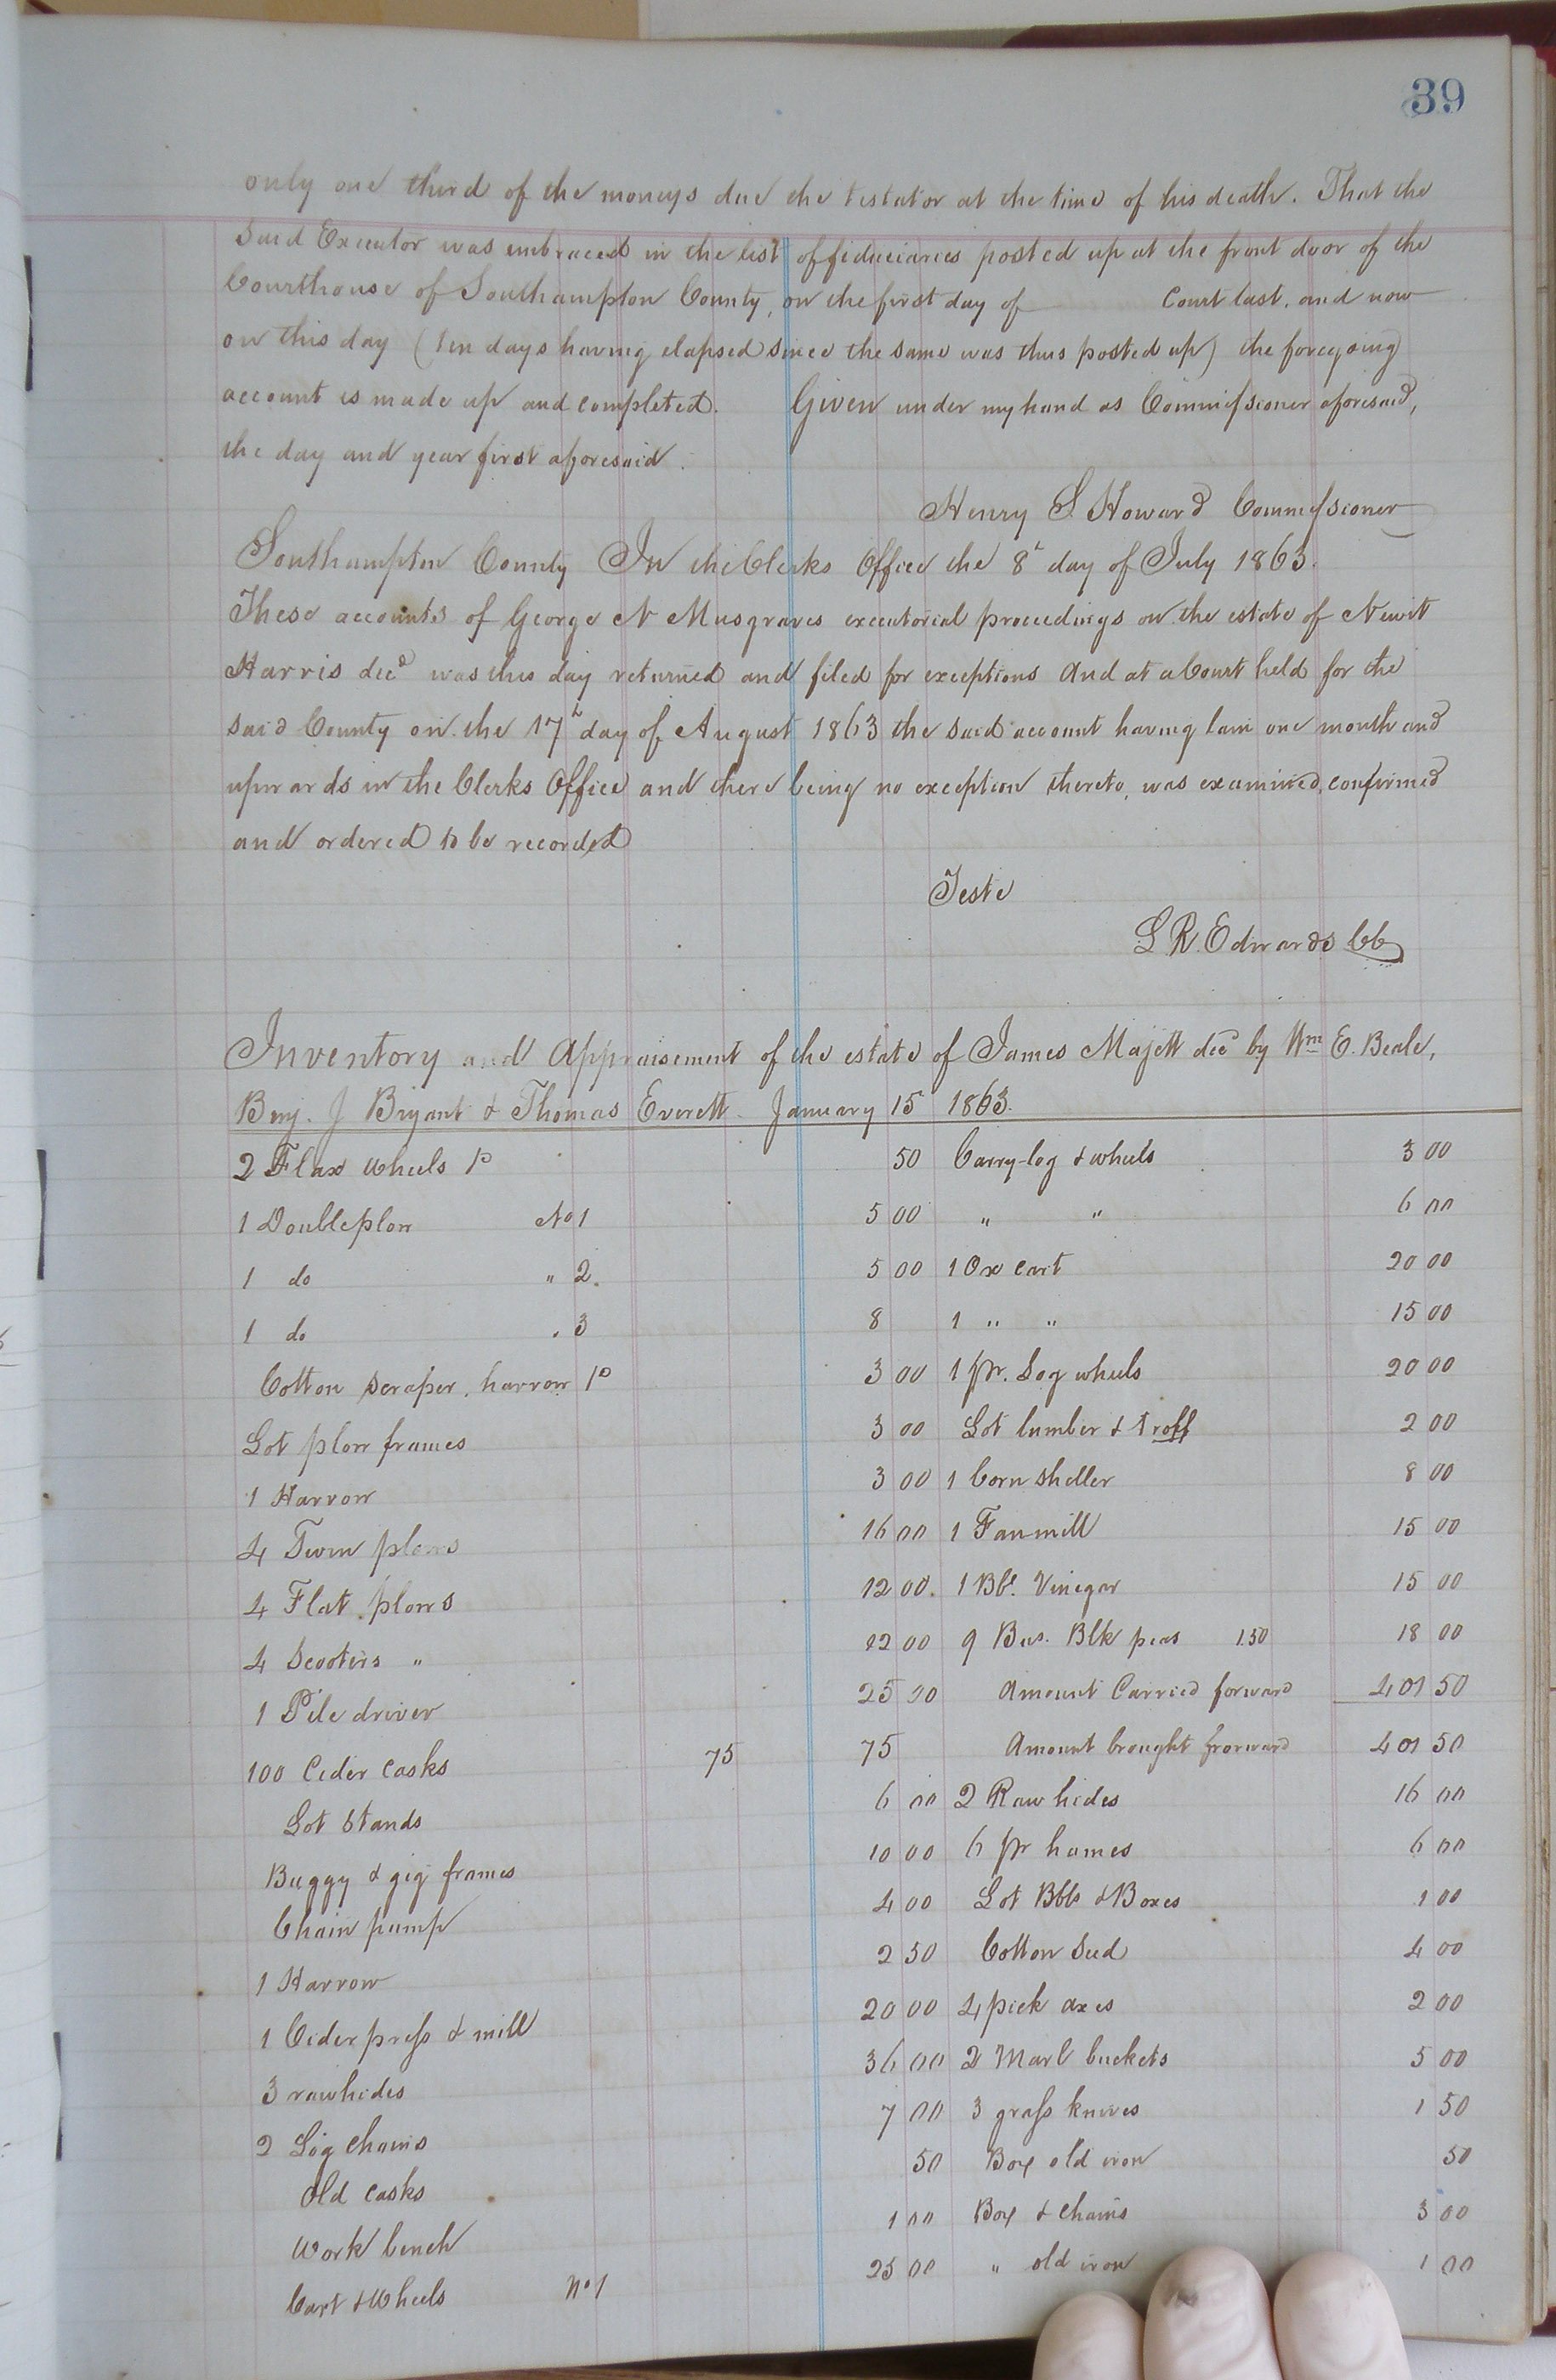 39
only one third of the moneys due the testator at the time of his death. That the
said Executor was embraced in the list of fiduciaries posted up at the front door of the
Courthouse of Southampton County, on the first day of Court last, and now
on this day (ten days having elapsed since the same was thus posted up) the foregoing
account is made up and completed. Given under my hand as Commissioner aforesaid,
the day and year first aforesaid.
Henry S. Howard Commissioner
Southampton County In the Clerks Office the 8th day of July 1863.
These accounts of George N Musgraves executorial proceedings on the estate of Newit
Harris decd was this day returned and filed for exceptions And at a Court held for the
said County on the 17th day of August 1863 the said account having lain one month and
upwards in the Clerks Office and there being no exception thereto, was examined, confirmed
and ordered to be recorded
Teste
L R. Edwards CC
Inventory and Appraisement of the estate of James Majett decd by Wm E. Beale,
Benj. J Bryant & Thomas Everett January 15 1863.
2 Flax wheels 50 Carry-log & wheels 3 00
1 Double plow No 1 5 00 " " 6 00
1 do " 2. 5 00 1 Ox cart 20 00
1 do . 3 8 1 " " 15 00
Cotton scraper, harrow 3 00 1 pr. Log wheels 20 00
Lot plow frames 3 00 Lot lumber & troff 2 00
1 Harrow 3 00 1 Corn sheller 8 00
4 Twin plows 16 00 1 Fan mill 15 00
4 Flat plows 12 00. 1 Bbl. Vinegar 15 00
4 Scooters " 12 00 9 Bus. Blk peas 1.50 18 00
1 Pile driver 25 00 Amount Carried forward 401 50
100 Cider casks 75 75 Amount brought frorward 401 50
Lot stands 6 00 2 Raw hides 16 00
Buggy & gig frames 10 00 6 pr hames 6 00
Chain pump 4 00 Lot Bbls & Boxes 1 00
1 Harrow 2 50 Cotton Seed 4 00
1 Cider press & mill 20 00 4 pick axes 2 00
3 rawhides 36 00 2 Marl buckets 5 00
2 Log chains 7 00 3 grass knives 1 50
Old casks 50 Box old iron 50
Work bench 1 00 Box & chains 3 00
Cart & Wheels No 1 25 00 " old iron 1 00